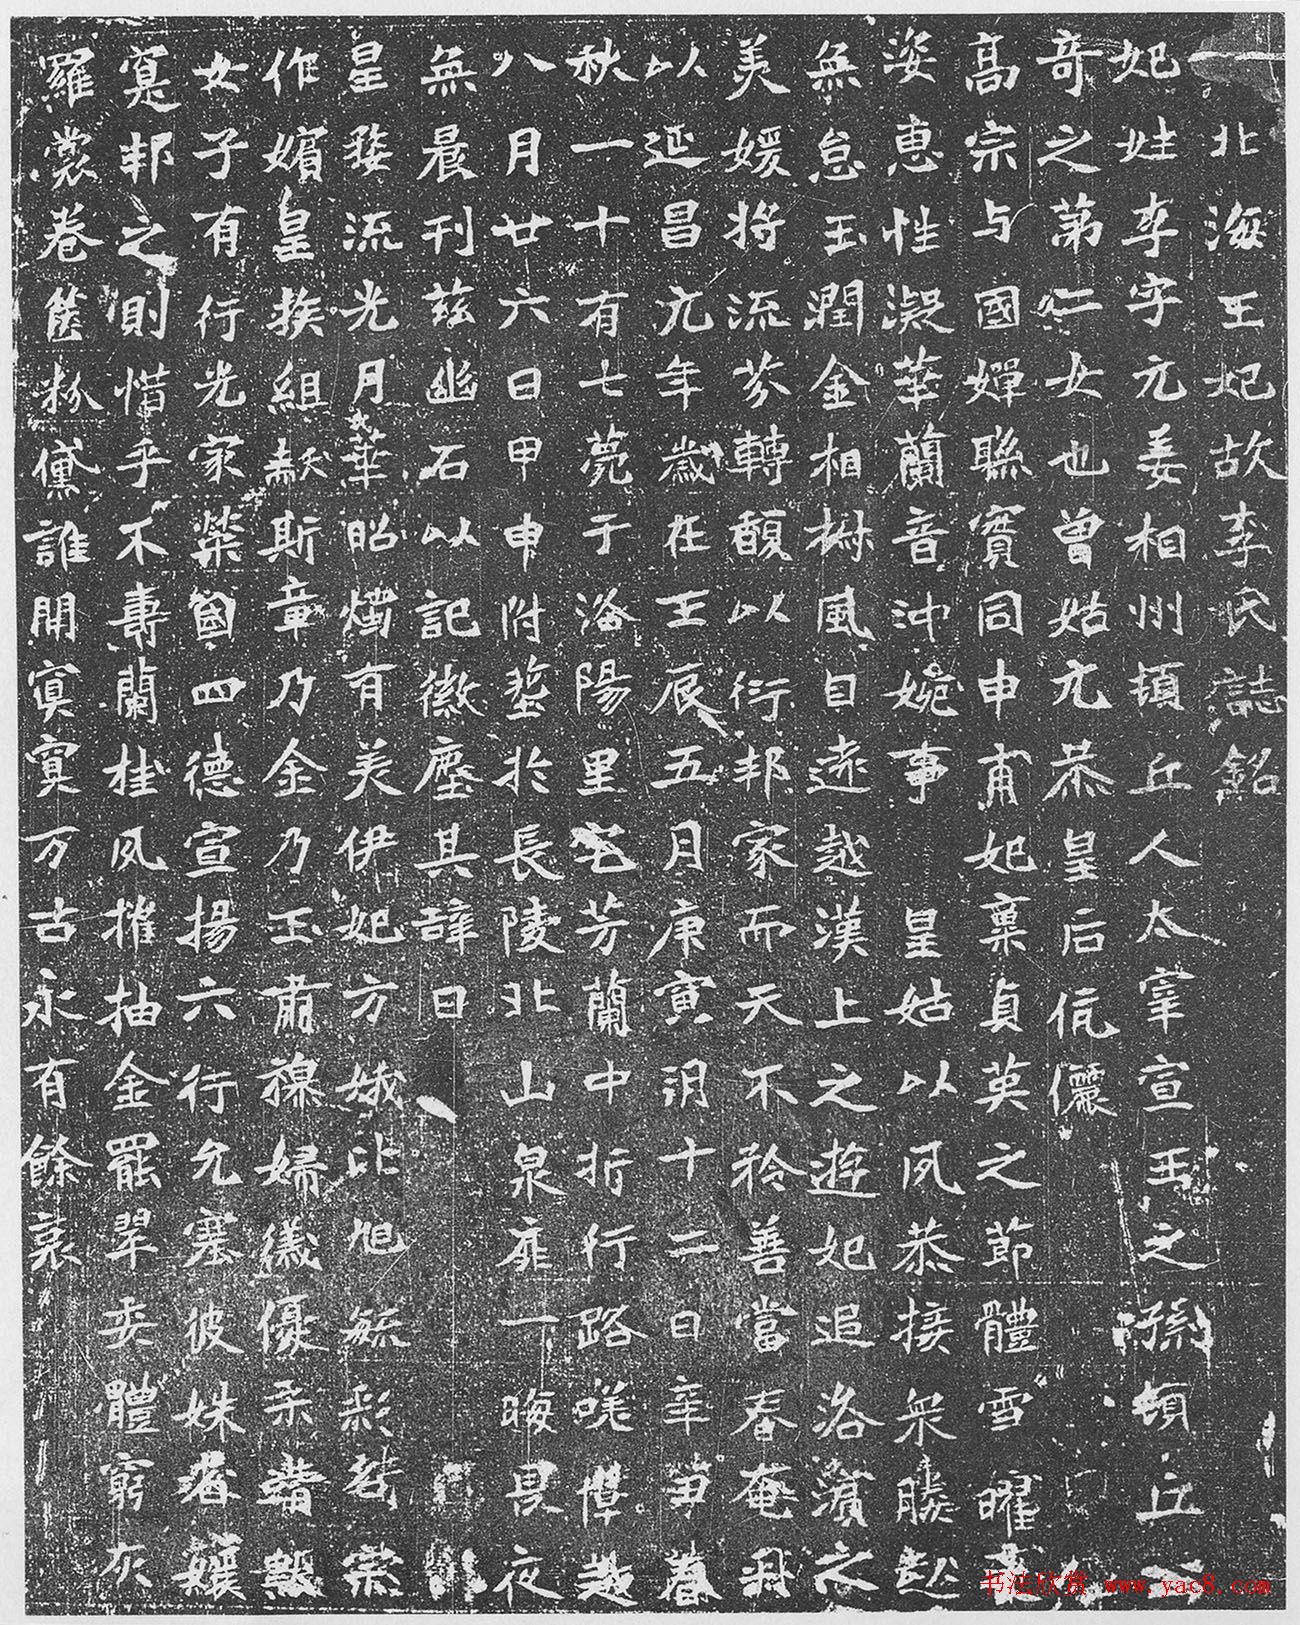 北海王妃故李氏誌銘
妃姓李字元姜相州頓丘人太宰宣王之孫頓丘
奇之第二女也曾姑元恭皇后伉儷
高宗与國嬋聯賓同申甫妃稟貞英之節體雪曜
姿恵性凝華蘭音沖婉事皇姑以夙恭接衆媵
無怠玉潤金相樹風自遠越漢上之遊妃追洛濱之
美媛將流芬轉馥以衍邦家而天不矜善當春奄
以延昌元年歲在壬辰五月庚寅朔十二日辛丑春
秋一十有七薨于洛陽里宅芳蘭中折行路嗟悼越
八月廿六日甲申附塟於長陵北山泉扉一晦畏夜
無晨刊茲幽石以記徽塵其辞曰
皇婺流光月華昭燭有美伊妃方娥比旭毓彩
作嬪皇族組黻斯章乃金乃玉肅穆婦儀優柔
女子有行光家榮國四德宣揚六行允塞彼姝孃
寔邦之則惜乎不壽蘭桂夙摧抽金罷翠委體窮灰
羅裳卷篋粉黛誰開寘寘万古永有餘哀
书法欣赏 www.yac8.com